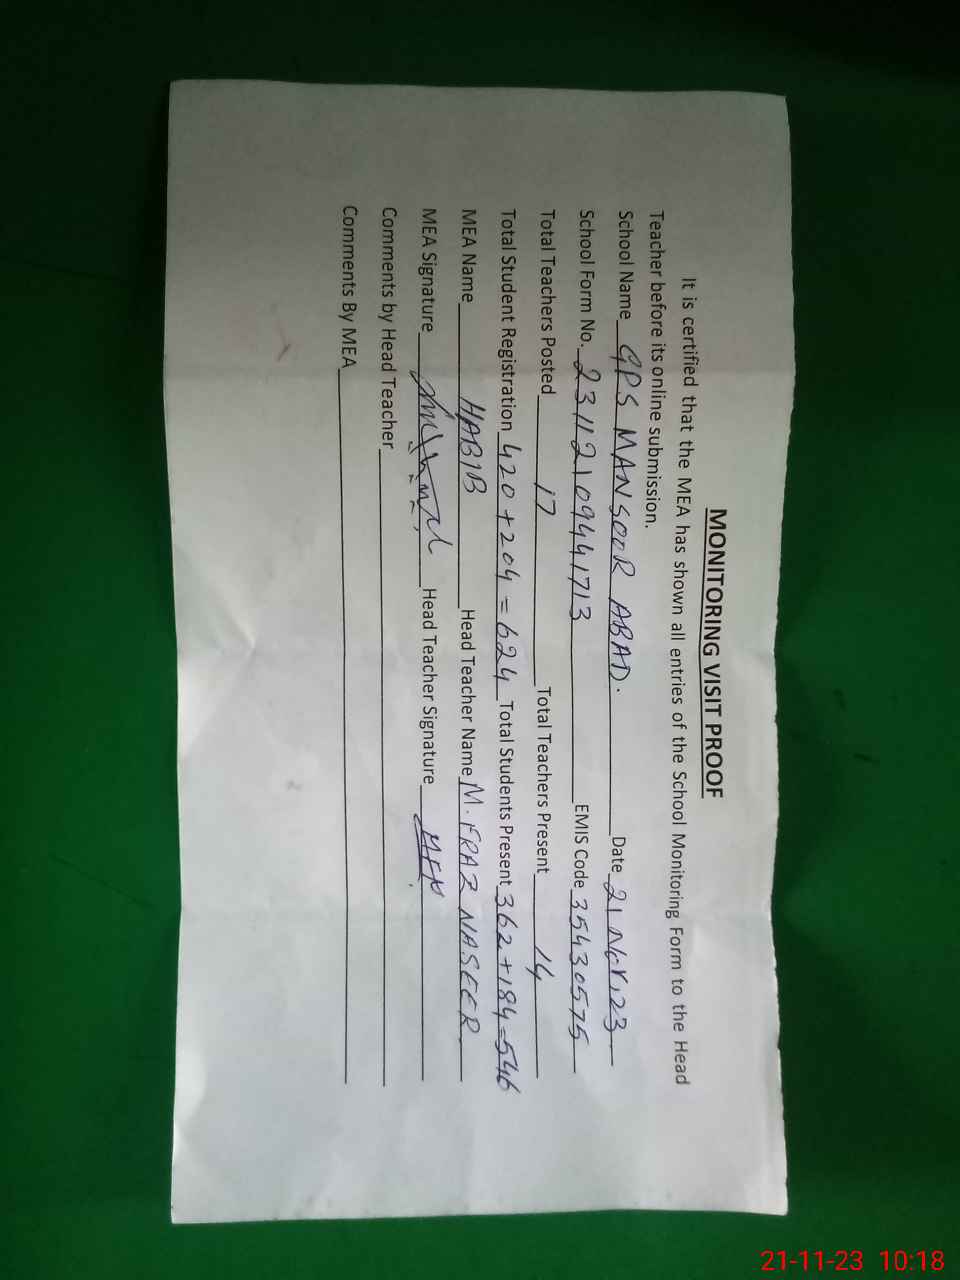 MONITORING VISIT PROOF
It is certified that the MEA has shown all entries of the School Monitoring Form to the Head
Teacher before its online submission.
School Name GPS MANSOOR ABAD. Date 21 Nov, 23
School Form No. 231121094441713 EMIS Code 35430575
Total Teachers Posted 17 Total Teachers Present 14
Total Student Registration 420 + 204 = 624 Total Students Present 362 + 184 = 546
MEA Name HABIB Head Teacher Name M. FRAZ NASEER
MEA Signature Head Teacher Signature MFN
Comments by Head Teacher
Comments By MEA
21-11-23 10:18